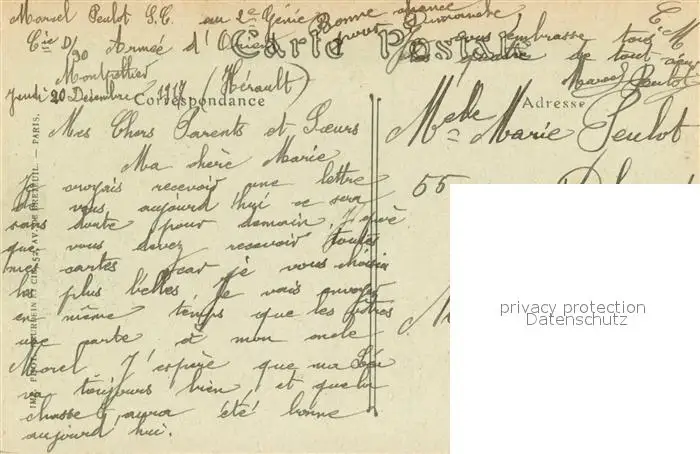 Marcel Peulot S.C. au 2e Génie
Cie D/30 Armée d'Orient
Montpellier (Hérault)
Jeudi 20 Décembre 1917
Bonne
pour Dimanche
Je vous embrasse tous
de tout cœur
Marcel Peulot
Carte Postale
Correspondance
Adresse
Mes Chers Parents et Sœurs
Ma chère Marie
Je croyais recevoir une lettre
de vous aujourd'hui ce sera
sans doute pour demain, J'espère
que vous devez recevoir toutes
mes cartes car je vous choisis
les plus belles, Je vais envoyer
en même temps que les vôtres
une carte à mon oncle
Morel, J'espère que ma
va toujours bien, et que la
chasse aura été bonne
aujourd'hui.
Melle Marie Peulot
55
privacy protection
Datenschutz